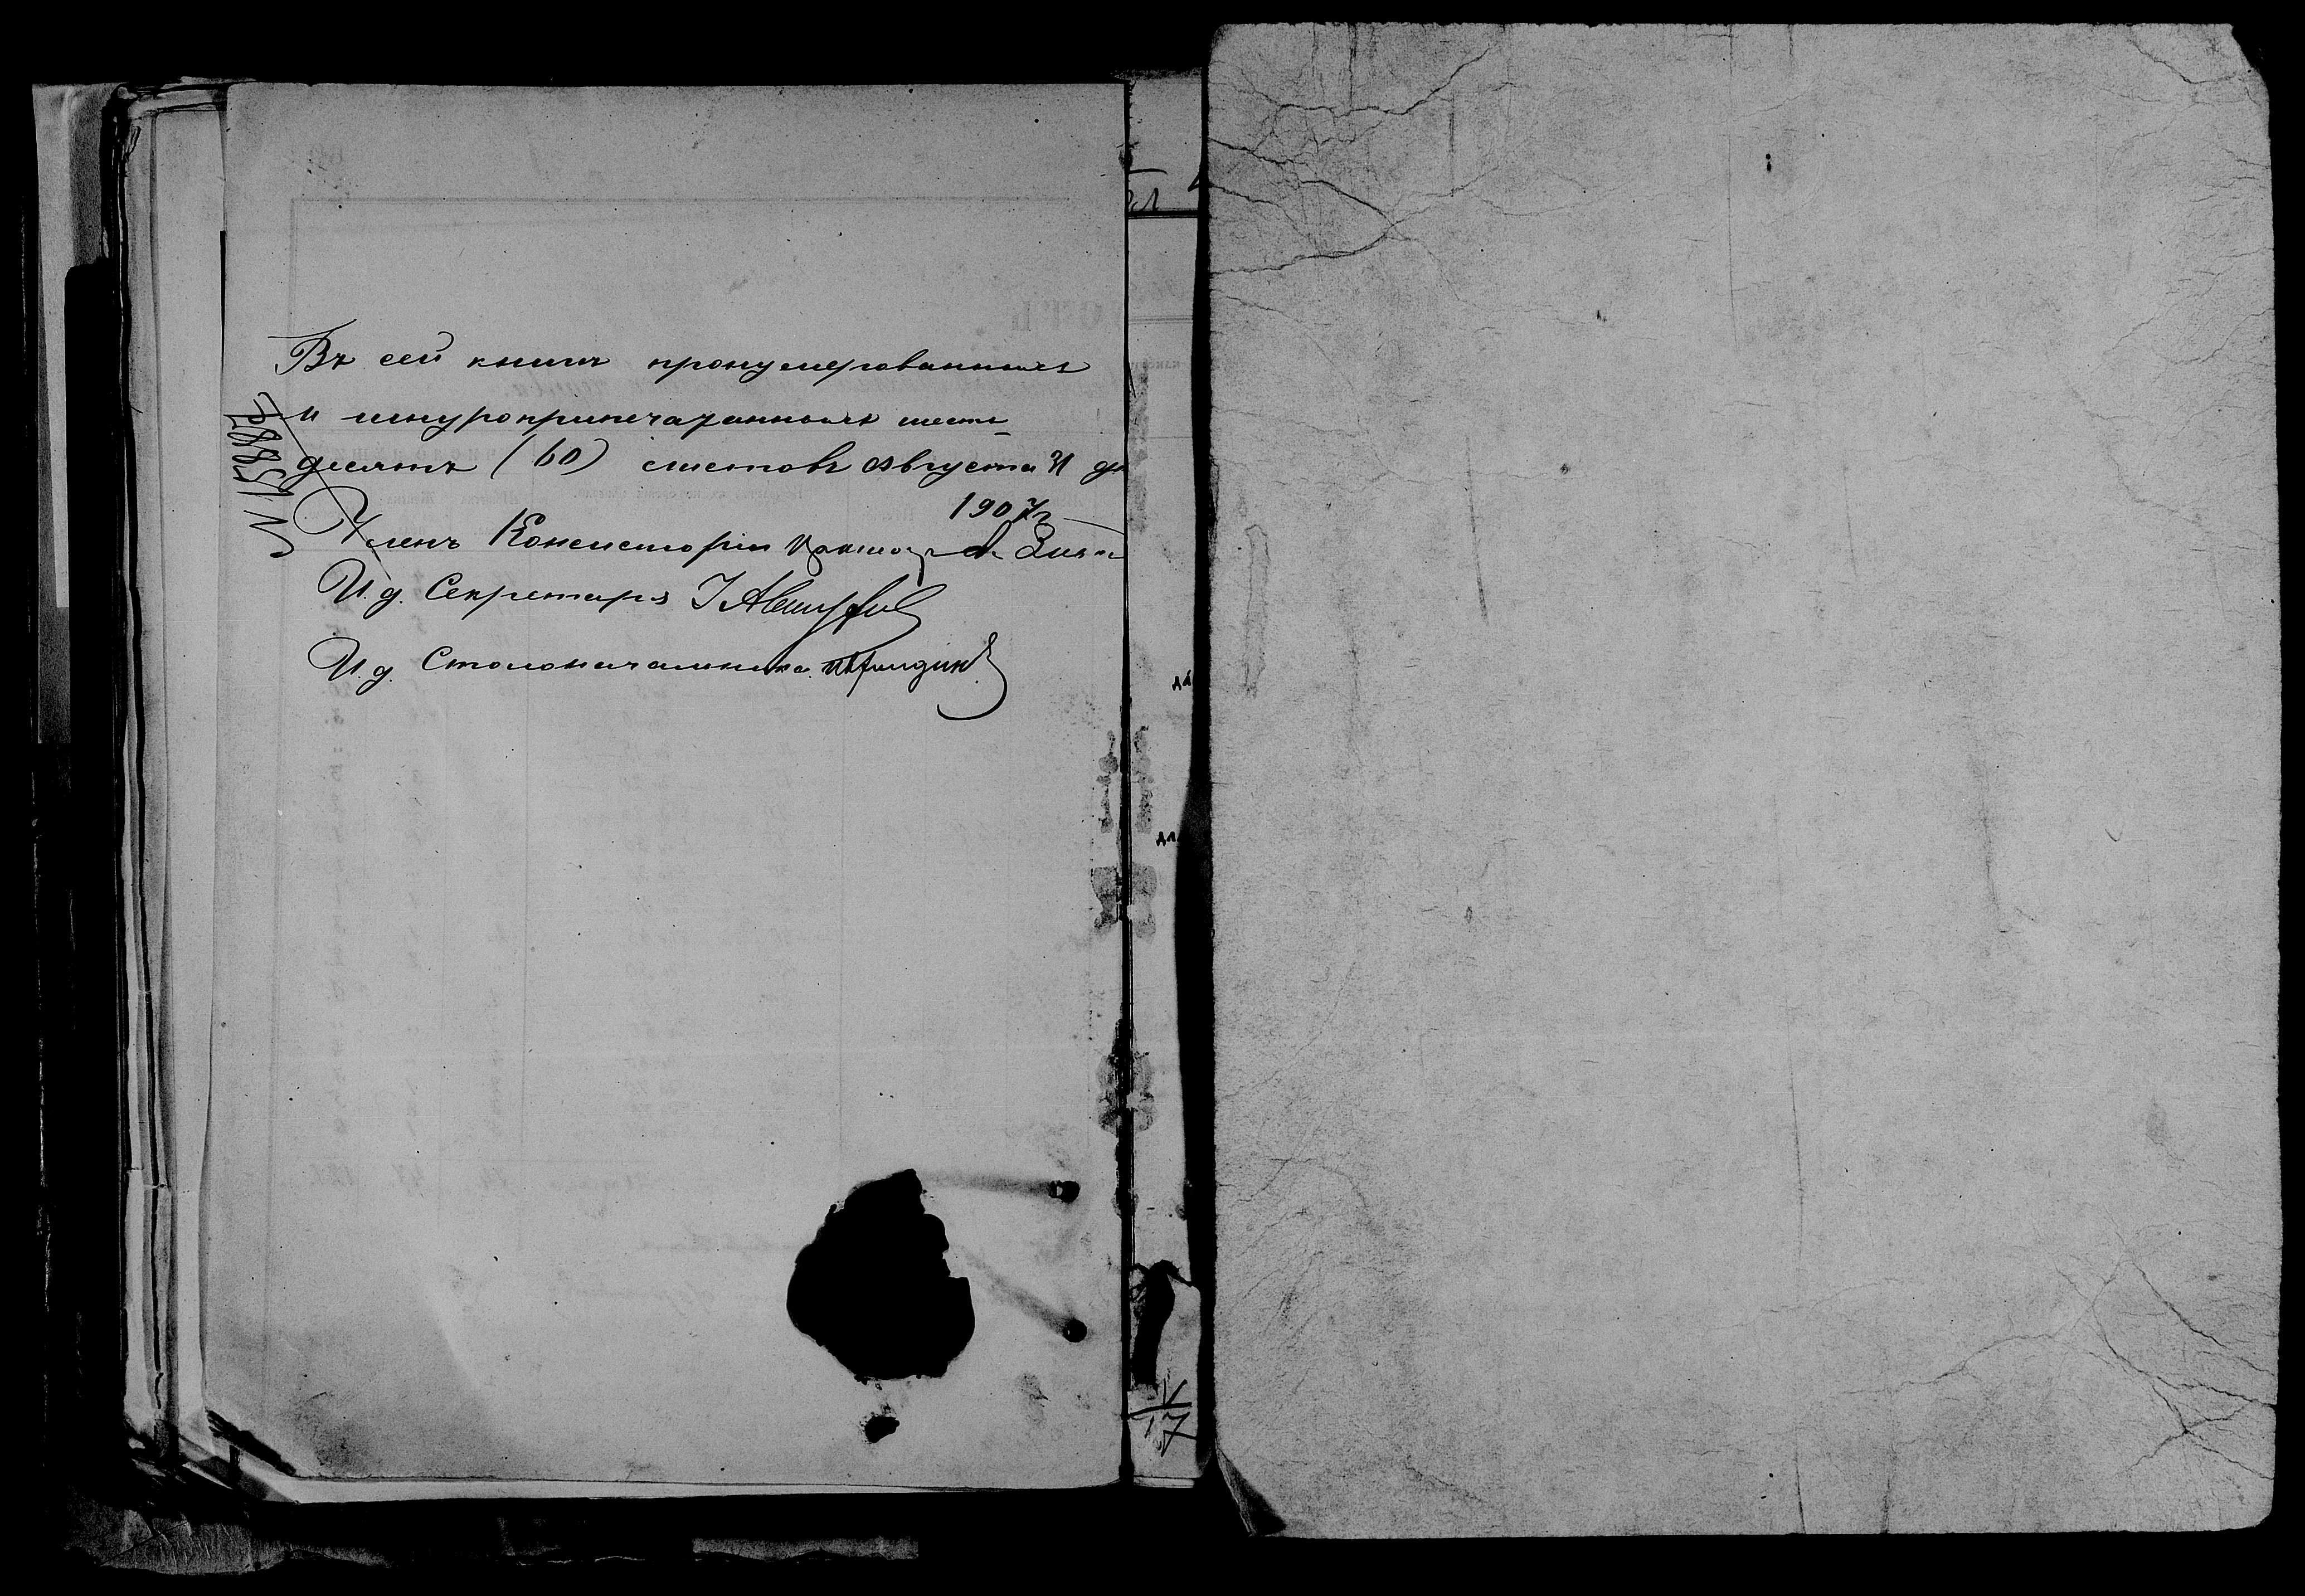 Въ сей книгѣ пронумерованныхъ
и шнуроприпечатанныхъ шесть-
десятъ (60) листовъ Августа 31 дн
1907 г
Членъ Консисторіи
И. д. Секретаря
И. д. Столоначальника
№ 15887